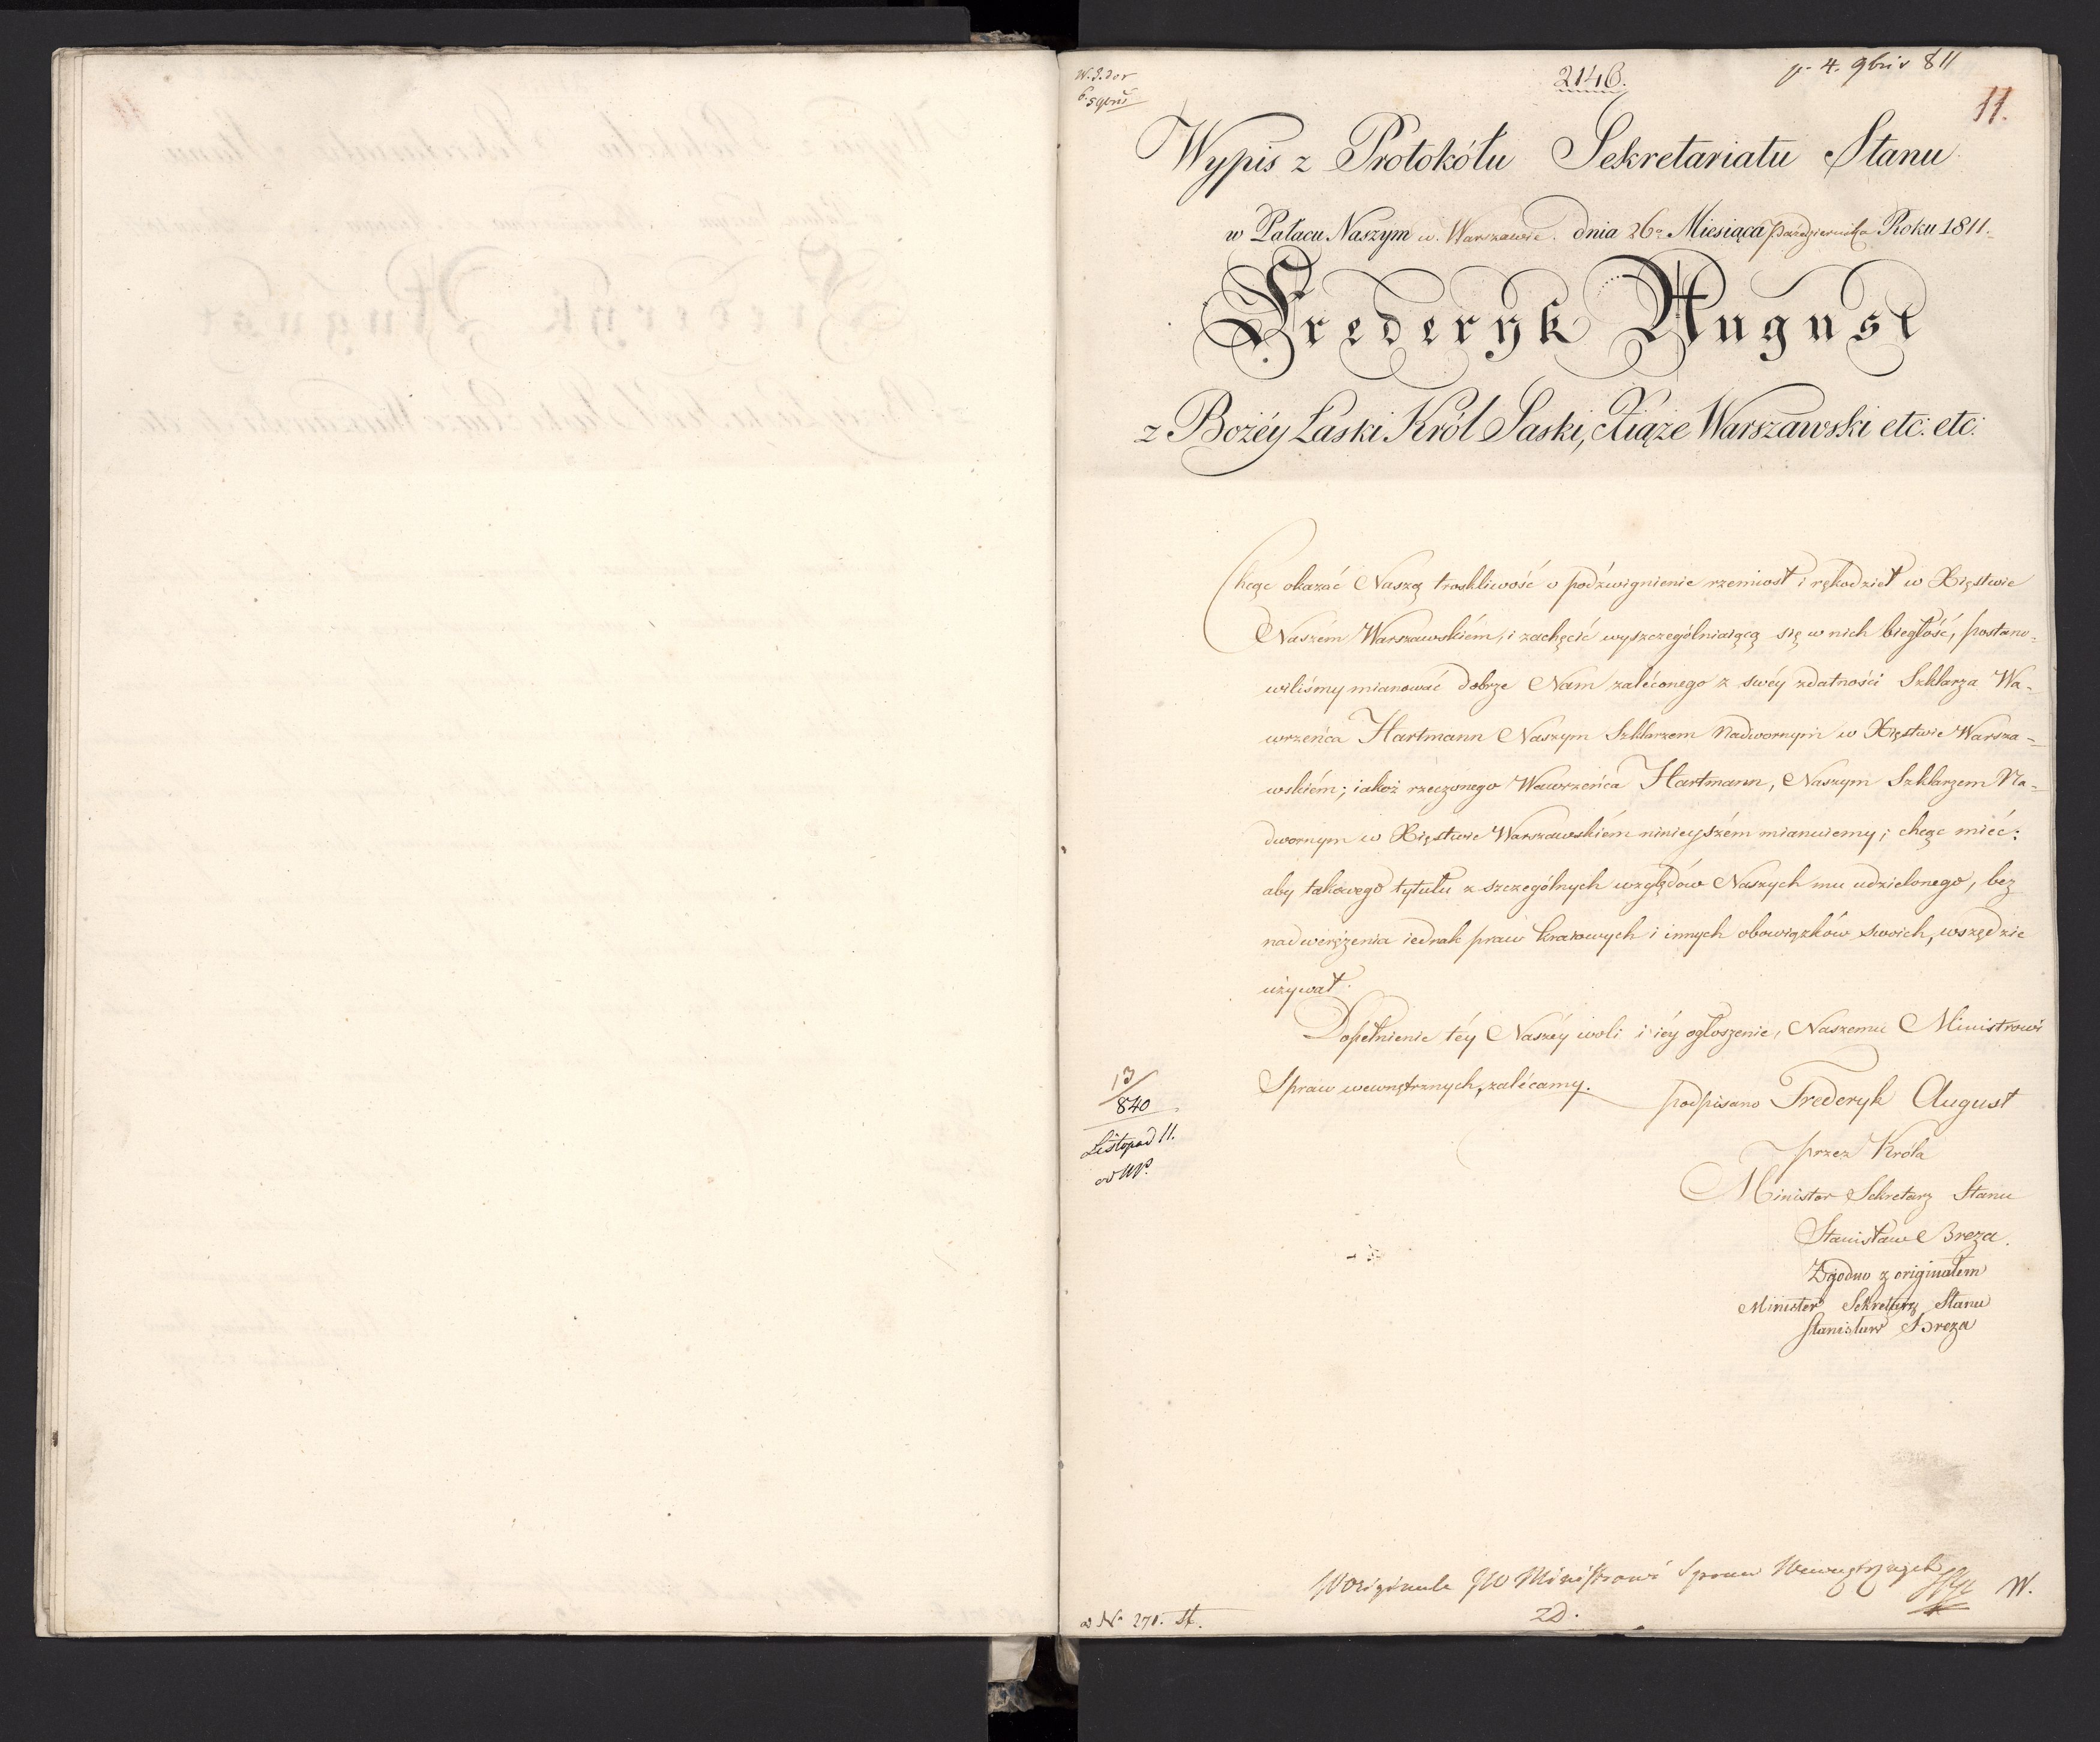 2146.
p. 4. 9bris 811
11.
Wypis z Protokółu Sekretariatu Stanu
w Pałacu Naszym w. Warszawie. dnia 26o Miesiąca Października Roku 1811.
Frederyk August
z Bożéy Łaski Król Saski, Xiąże Warszawski etc: etc:
Chcąc okazać Naszą troskliwość o podźwignienie rzemiosł i rękodzieł w Xięstwie
Naszém Warszawskiém, i zachęcić wyszczególniaiącą się w nich biegłość, postano-
wiliśmy mianować dobrze Nam zaléconego z swéy zdatności Szklarza Wa-
wrzeńca Hartmann Naszym Szklarzem Nadwornym w Xięstwie Warsza-
wskiém; iakoż rzeczonego Wawrzeńca Hartmann, Naszym Szklarzem Na-
dwornym w Xięstwie Warszawskiém ninieyszém mianuiemy; chcąc mieć:
aby takowego tytułu z szczególnych względów Naszych mu udzielonego, bez
nadwerężenia iednak praw kraiowych i innych obowiązków swoich, wszędzie
używał.
Dopełnienie téy Naszéy woli i iéy ogłoszenie, Naszemu Ministrowi
Spraw wewnętrznych, zalécamy.
podpisano Frederyk August
przez Króla
Minister Sekretarz Stanu
Stanisław Breza.
Zgodno z originałem
Minister Sekretarz Stanu
Stanisław Breza
13/840
Listopad 11.
W originale JW Ministrowi Spraw Wewnętrznych
W.
ad No 271. st.